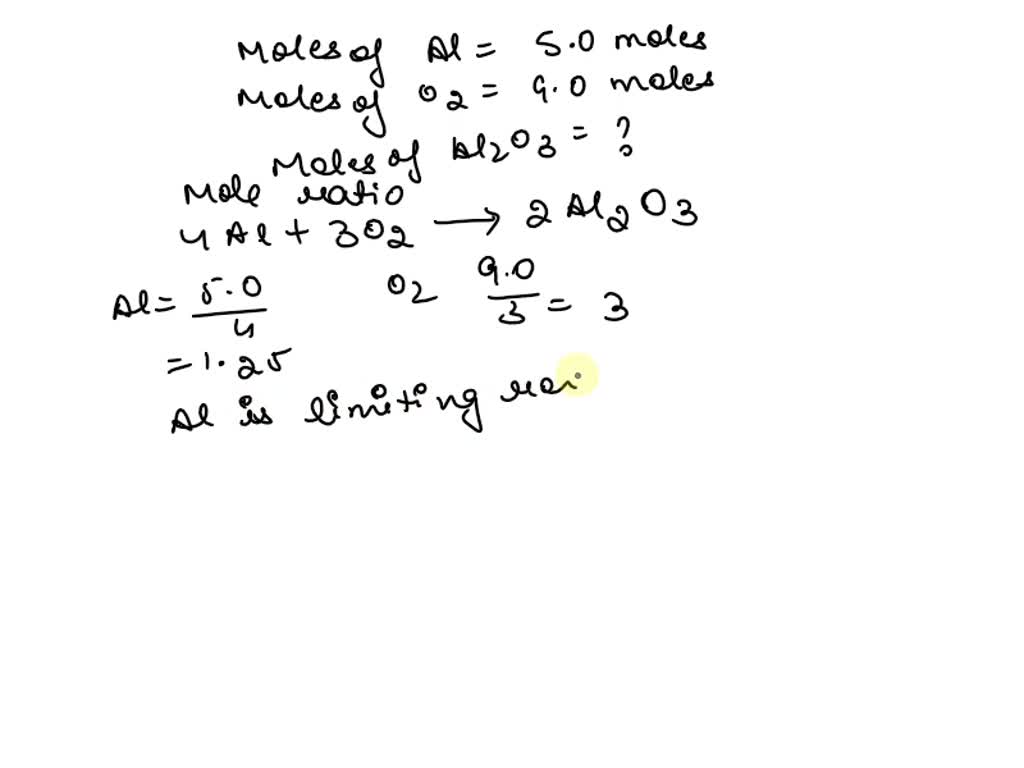 Moles of Al = 5.0 moles
Moles of O2 = 9.0 moles
Moles of Al2O3 = ?
Mole ratio
4 Al + 3O2 → 2 Al2O3
Al = 5.0/4 O2 9.0/3 = 3
= 1.25
Al is limiting